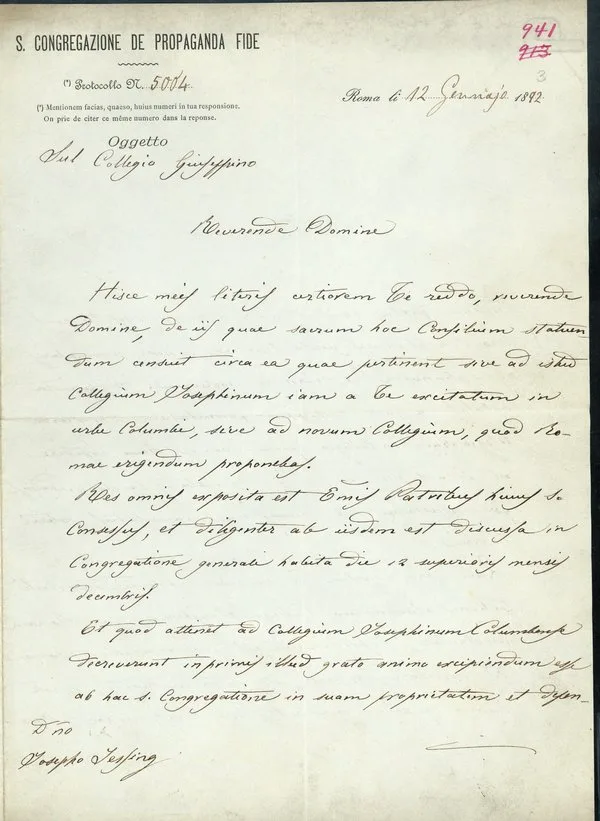 941
913
3
S. CONGREGAZIONE DE PROPAGANDA FIDE
(*) Protocollo N. 5004
(*) Mentionem facias, quaeso, huius numeri in tua responsione.
On prie de citer ce même numéro dans la reponse.
Roma li 12 Gennajo 1892
Oggetto
Sul Collegio Giuseppino
Reverende Domine
Hisce meis literis certiorem Te reddo, reverende
Domine, de iis quae sacrum hoc Consilium statuen-
dum censuit circa ea quae pertinent sive ad istud
Collegium Josephinum iam a Te excitatum in
urbe Columbi, sive ad novum Collegium, quod Ro-
mae erigendum proponebas.
Res omnis exposita est Emis Patribus huius S.
Consessus, et diligenter ab iisdem est discussa in
Congregatione generali habita die 12 superioris mensis
decembris.
Et quod attinet ad Collegium Josephinum Columbense
decreverunt in primis illud grato animo excipiendum esse
ab hac S. Congregatione in suam proprietatem et depen-
Dno
Josepho Jessing